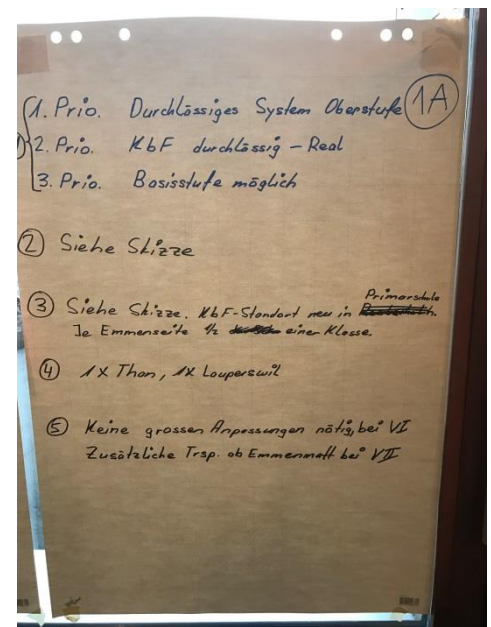 1A
1. Prio. Durchlässiges System Oberstufe
2. Prio. KbF durchlässig – Real
3. Prio. Basisstufe möglich
② Siehe Skizze
Primarschule
③ Siehe Skizze. KbF-Standort neu in
Je Emmenseite 1/2 einer Klasse.
④ 1x Than, 1x Lauperswil
⑤ Keine grossen Anpassungen nötig, bei VI
Zusätzliche Trsp. ab Emmenmatt bei VII